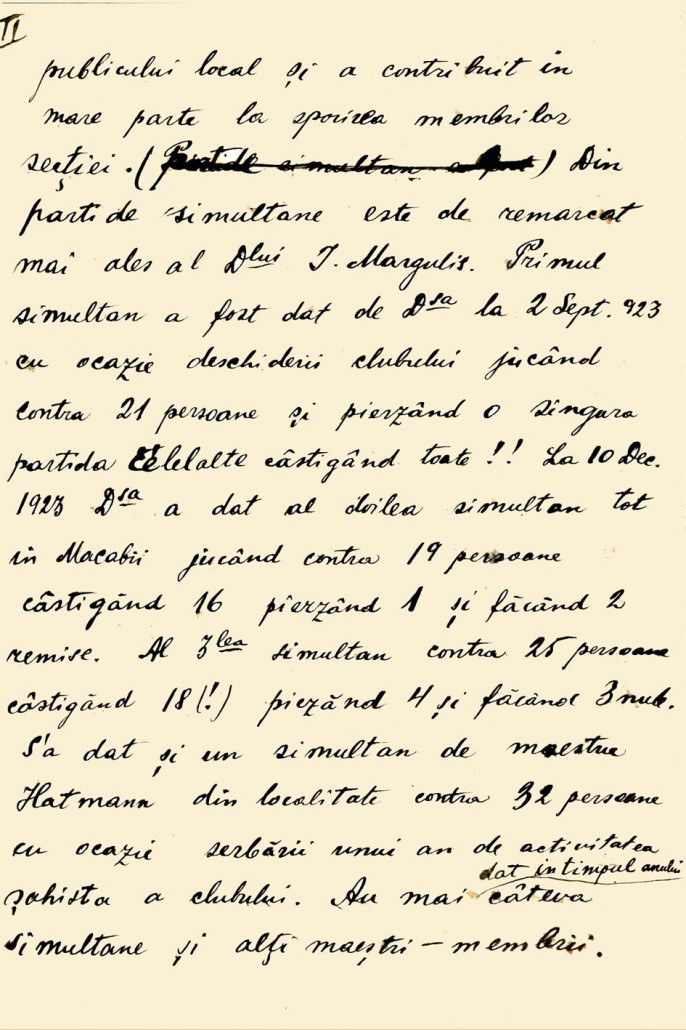 II
publicului local și a contribuit in
mare parte la sporirea membrilor
secției. (Partide simultan) Din
partide simultane este de remarcat
mai ales al Dlui I. Margulis. Primul
simultan a fost dat de Dsa la 2 Sept. 923
cu ocazie deschiderii clubului jucând
contra 21 persoane și pierzând o singura
partida Celelalte câstigând toate!! La 10 Dec.
1923 Dsa a dat al doilea simultan tot
in Macabii jucând contra 19 persoane
câstigând 16 pierzând 1 și făcând 2
remise. Al 3lea simultan contra 25 persoane
câstigând 18(!) piezând 4 și făcând 3 nule.
S'a dat și un simultan de maestru
Hatmann din localitate contra 32 persoane
cu ocazie serbării unui an de activitatea
dat in timpul anului
șahista a clubului. Au mai câteva
simultane și alți maeștri – membrii.